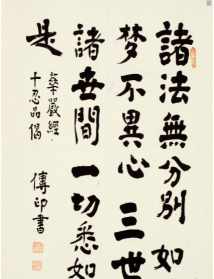 諸法無分別如
梦不異心三世
諸世間一切悉如
是
華嚴經·
十忍品偈
傳印書